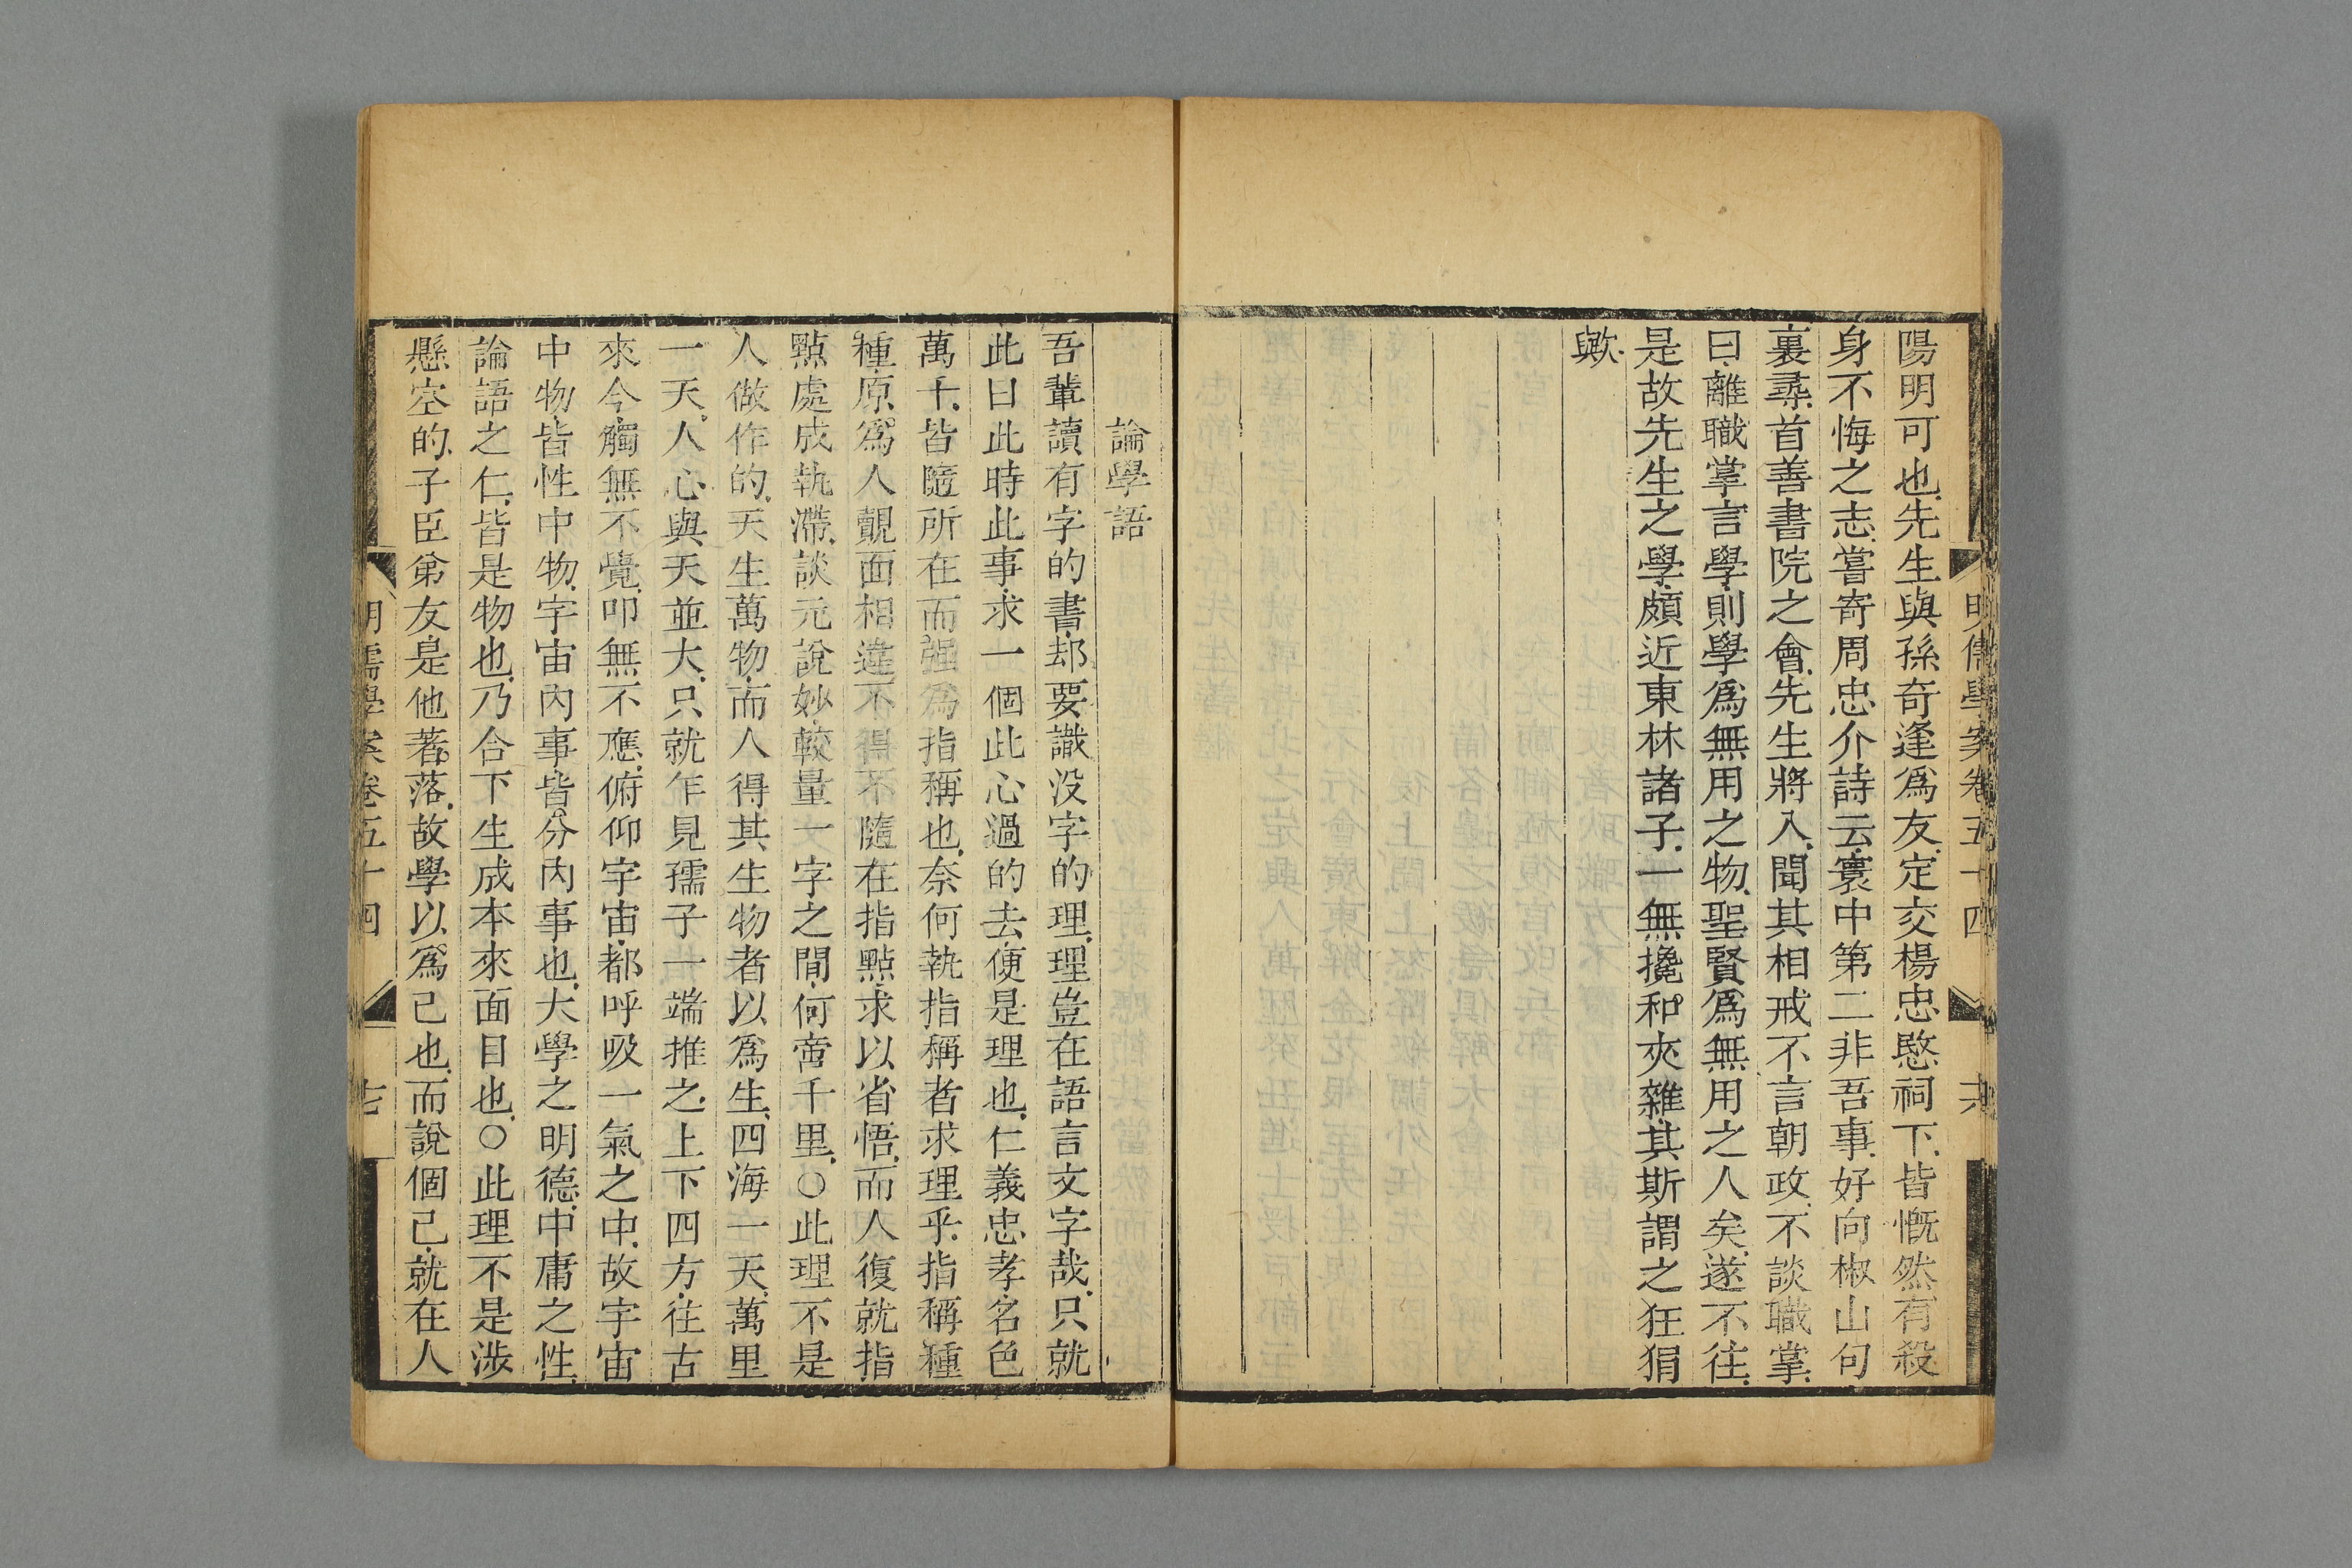 明儒學案卷五十四
陽明可也先生與孫奇逢爲友定交楊忠愍祠下皆慨然有殺
身不悔之志嘗寄周忠介詩云寰中第二非吾事好向椒山句
裏尋首善書院之會先生將入聞其相戒不言朝政不談職掌
曰離職掌言學則學爲無用之物聖賢爲無用之人矣遂不往
是故先生之學頗近東林諸子一無攙和夾雜其斯謂之狂狷
歟
論學語
吾輩讀有字的書却要識没字的理理豈在語言文字哉只就
此日此時此事求一個此心過的去便是理也仁義忠孝名色
萬千皆隨所在而强爲指稱也奈何執指稱者求理乎指稱種
種原爲人覿面相違不得不隨在指點求以省悟而人復就指
點處成執滯談元說妙較量一字之間何啻千里○此理不是
人做作的天生萬物而人得其生物者以爲生四海一天萬里
一天人心與天並大只就乍見孺子一端推之上下四方往古
來今觸無不覺叩無不應俯仰宇宙都呼吸一氣之中故宇宙
中物皆性中物宇宙內事皆分內事也大學之明德中庸之性
論語之仁皆是物也乃合下生成本來面目也○此理不是涉
懸空的子臣弟友是他著落故學以爲己也而說個己就在人
明儒學案卷五十四